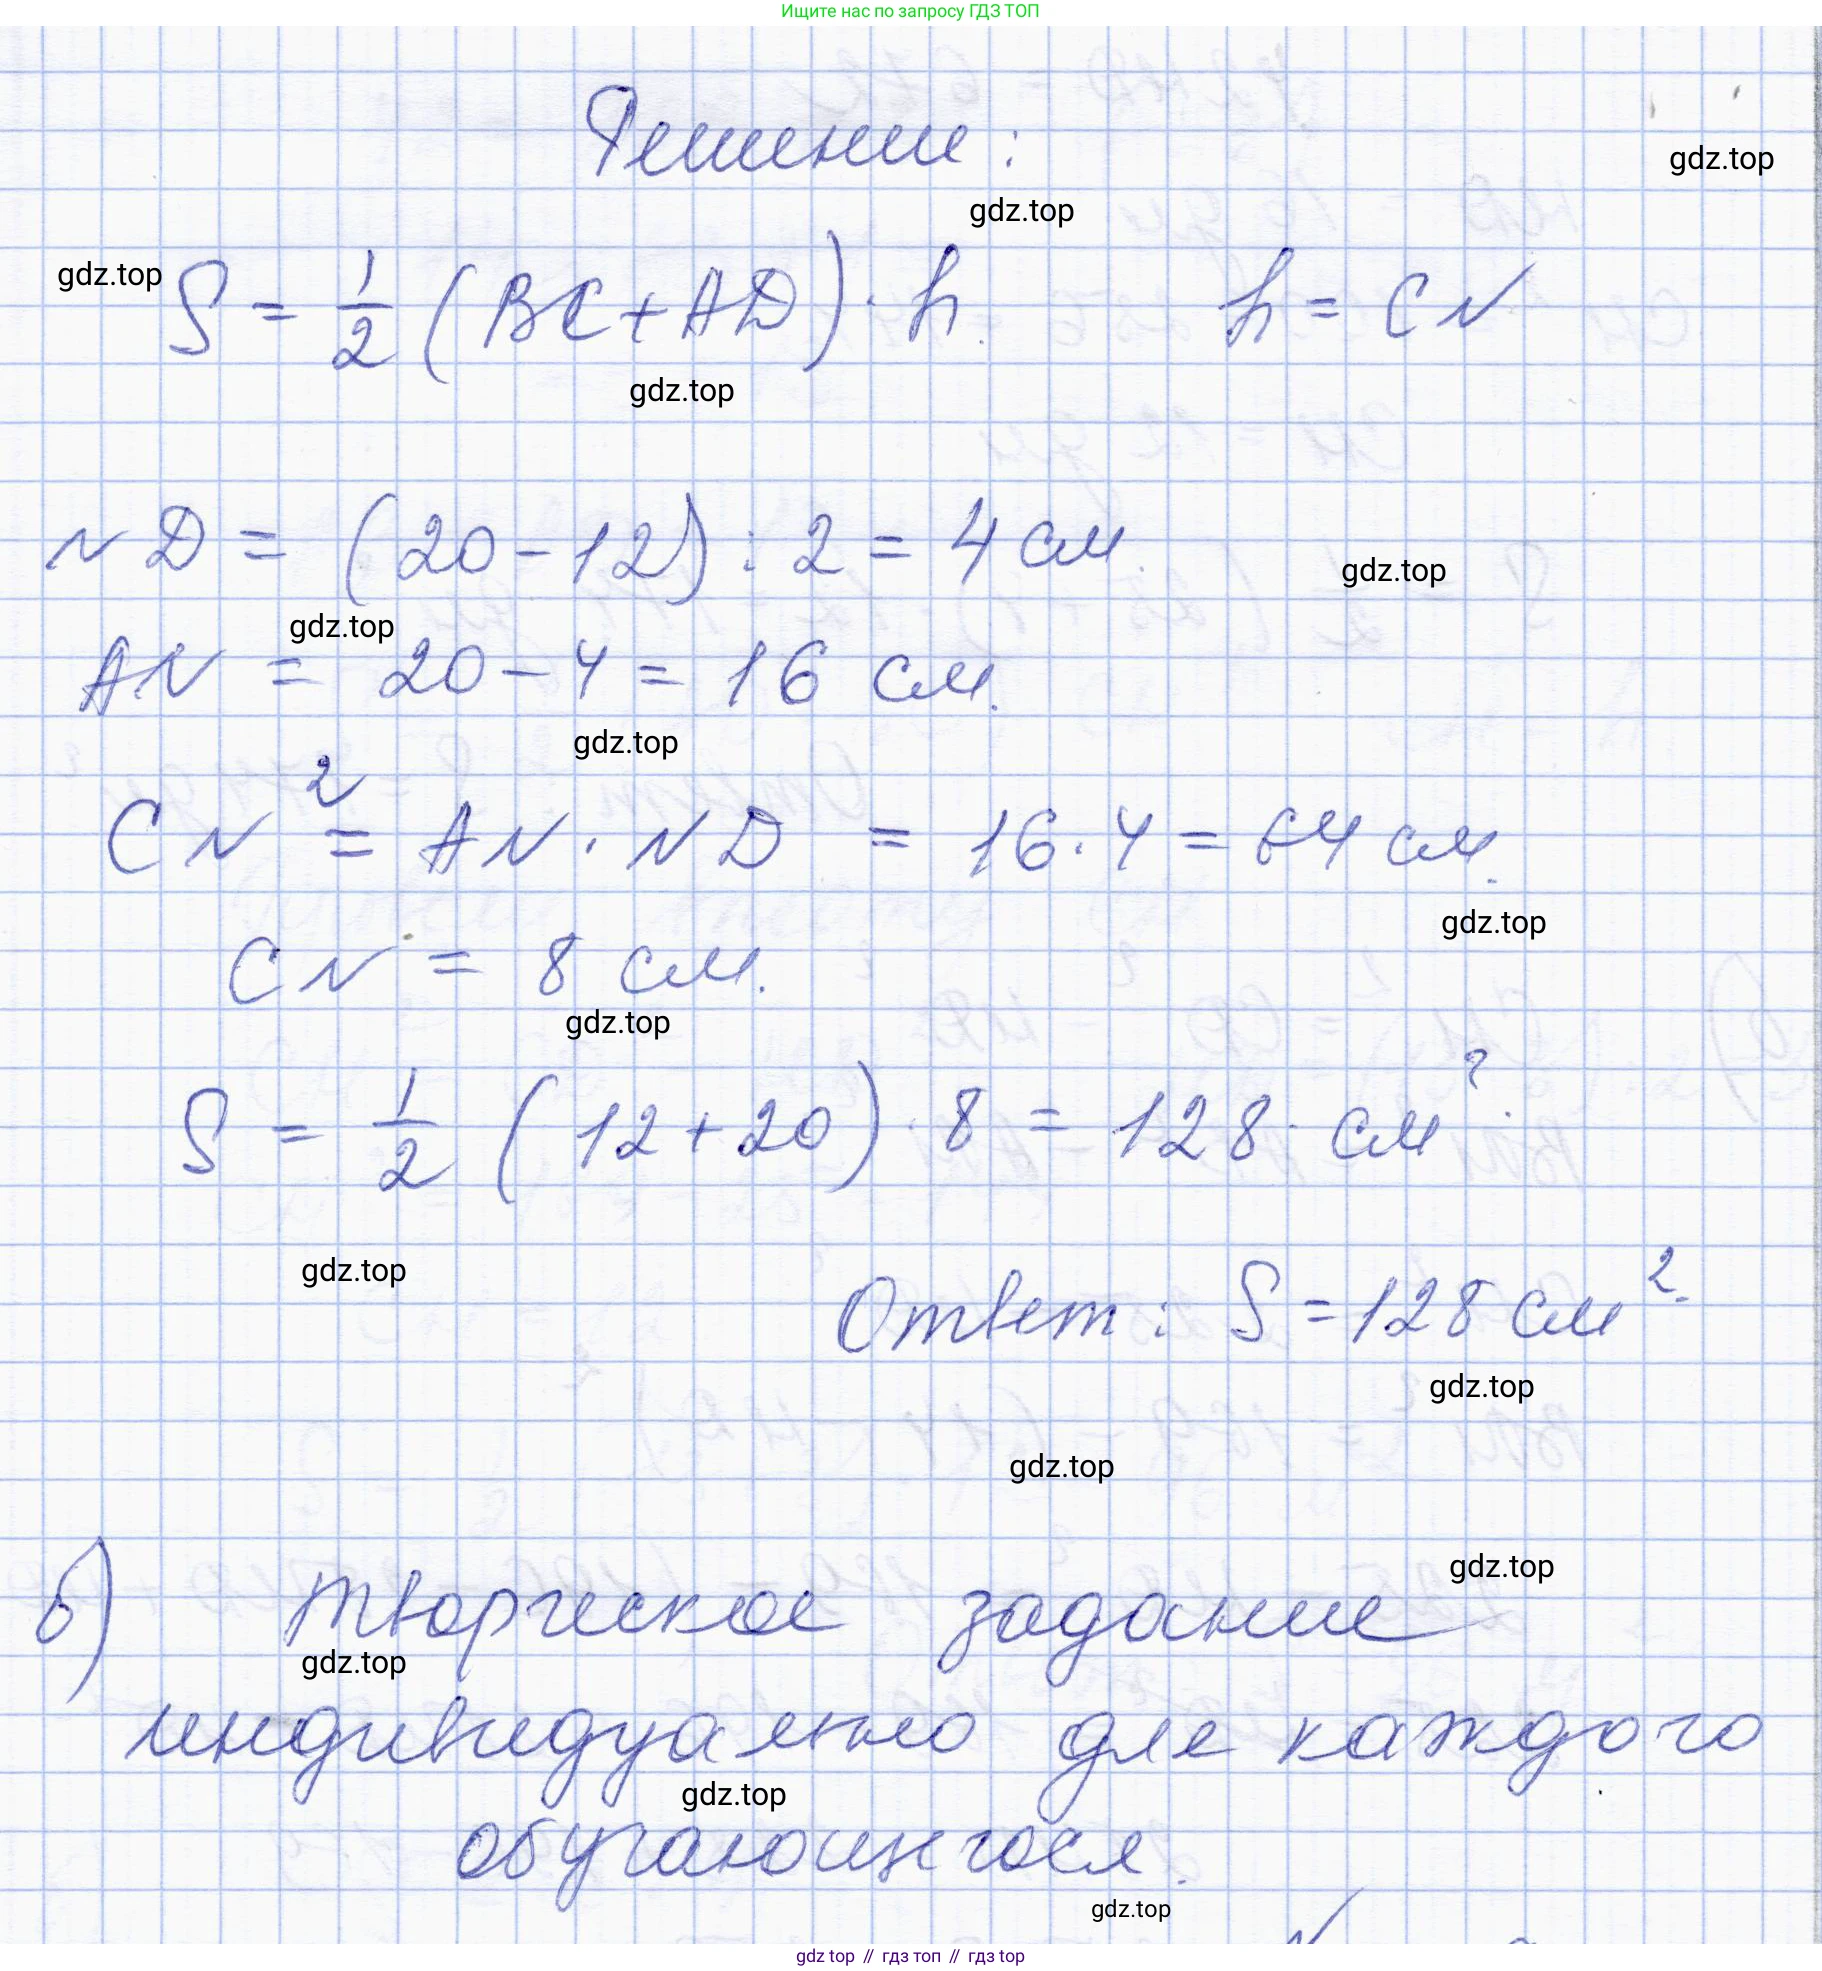 Ищите нас по запросу ГДЗ ТОП
Решение:
gdz.top
gdz.top
gdz.top
S = 1/2 (BC + AD) · h. h = CN
gdz.top
ND = (20 - 12) : 2 = 4 см.
gdz.top
gdz.top
AN = 20 - 4 = 16 см.
gdz.top
CN² = AN · ND = 16 · 4 = 64 см.
gdz.top
CN = 8 см.
gdz.top
S = 1/2 (12 + 20) · 8 = 128 см².
gdz.top
Ответ: S = 128 см².
gdz.top
gdz.top
gdz.top
б) творческое задание
gdz.top
индивидуально для каждого
gdz.top
обучающегося.
gdz.top
gdz top // гдз топ // gdz top